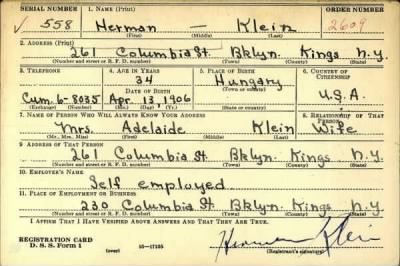 SERIAL NUMBER 1. NAME (Print) ORDER NUMBER
✓ 558 Herman — Klein 2609
(First) (Middle) (Last)
2. ADDRESS (Print)
261 Columbia St. Bklyn. Kings N.Y.
(Number and street or R. F. D. number) (Town) (County) (State)
3. TELEPHONE 4. AGE IN YEARS 5. PLACE OF BIRTH 6. COUNTRY OF CITIZENSHIP
34 Hungary
DATE OF BIRTH (Town or county)
Cum. 6-8035 Apr. 13, 1906 U.S.A.
(Exchange) (Number) (Mo.) (Day) (Yr.) (State or country)
7. NAME OF PERSON WHO WILL ALWAYS KNOW YOUR ADDRESS 8. RELATIONSHIP OF THAT PERSON
Mrs. Adelaide Klein Wife
(Mr., Mrs., Miss) (First) (Middle) (Last)
9. ADDRESS OF THAT PERSON
261 Columbia St. Bklyn. Kings N.Y.
(Number and street or R. F. D. number) (Town) (County) (State)
10. EMPLOYER'S NAME
Self employed
11. PLACE OF EMPLOYMENT OR BUSINESS
230 Columbia St. Bklyn. Kings N.Y.
(Number and street or R. F. D. number) (Town) (County) (State)
I AFFIRM THAT I HAVE VERIFIED ABOVE ANSWERS AND THAT THEY ARE TRUE.
REGISTRATION CARD
D. S. S. Form 1 (over) 16—17105 Herman Klein
(Registrant's signature)